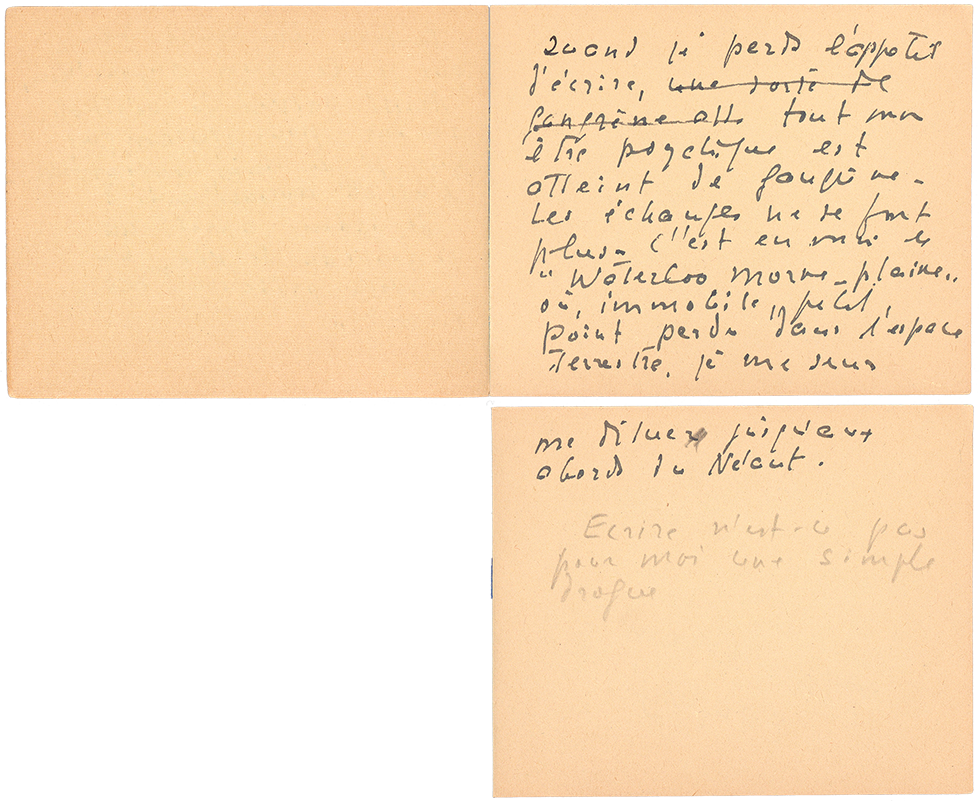 Quand je perds l'appétit
d'écrire, une sorte de
gangrène att tout mon
être psychique est
atteint de gangrène -
Les échanges ne se font
plus - C'est en moi le
"Waterloo morne - plaine"
où, immobile, petit
point perdu dans l'espace
terrestre, je me sens
me diluer jusqu'aux
abords du Néant.
Ecrire n'est-ce pas
pour moi une simple
drogue